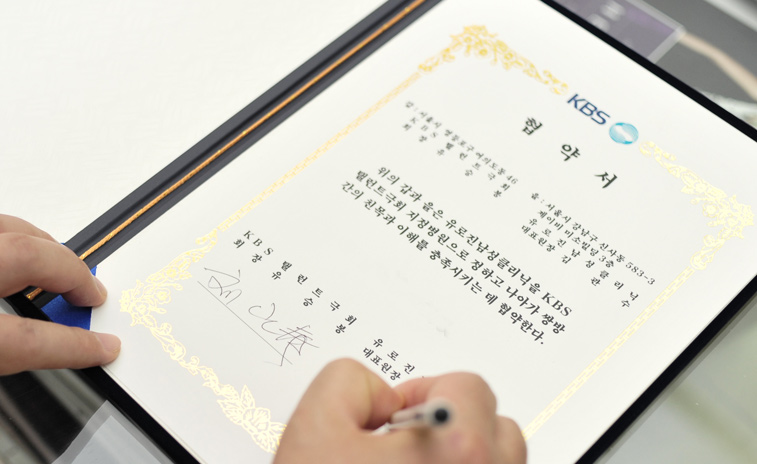 KBS
협약서
갑 : 서울시 영등포구 여의도동 46
KBS 탤런트극회
회장 유승봉
을 : 서울시 강남구 신사동 583-3
제이비 미소빌딩 3층
유로진남성클리닉
대표원장 김관수
위의 갑과 을은 유로진남성클리닉을 KBS
탤런트극회 지정병원으로 정하고 나아가 쌍방
간의 친목과 이해를 충족시키는 데 협약한다.
KBS 탤런트극회
회장 유승봉
유로진
대표원장